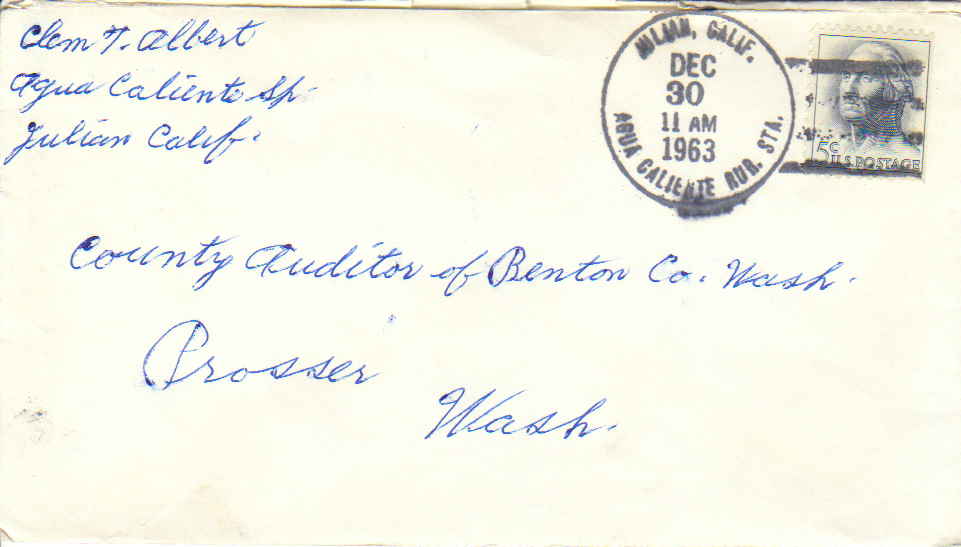 Clem T. Albert
Agua Caliente Sp.
Julian Calif.
JULIAN, CALIF.
DEC
30
11 AM
1963
AGUA CALIENTE RUR. STA.
5¢
U.S. POSTAGE
County Auditor of Benton Co. Wash.
Prosser
Wash.